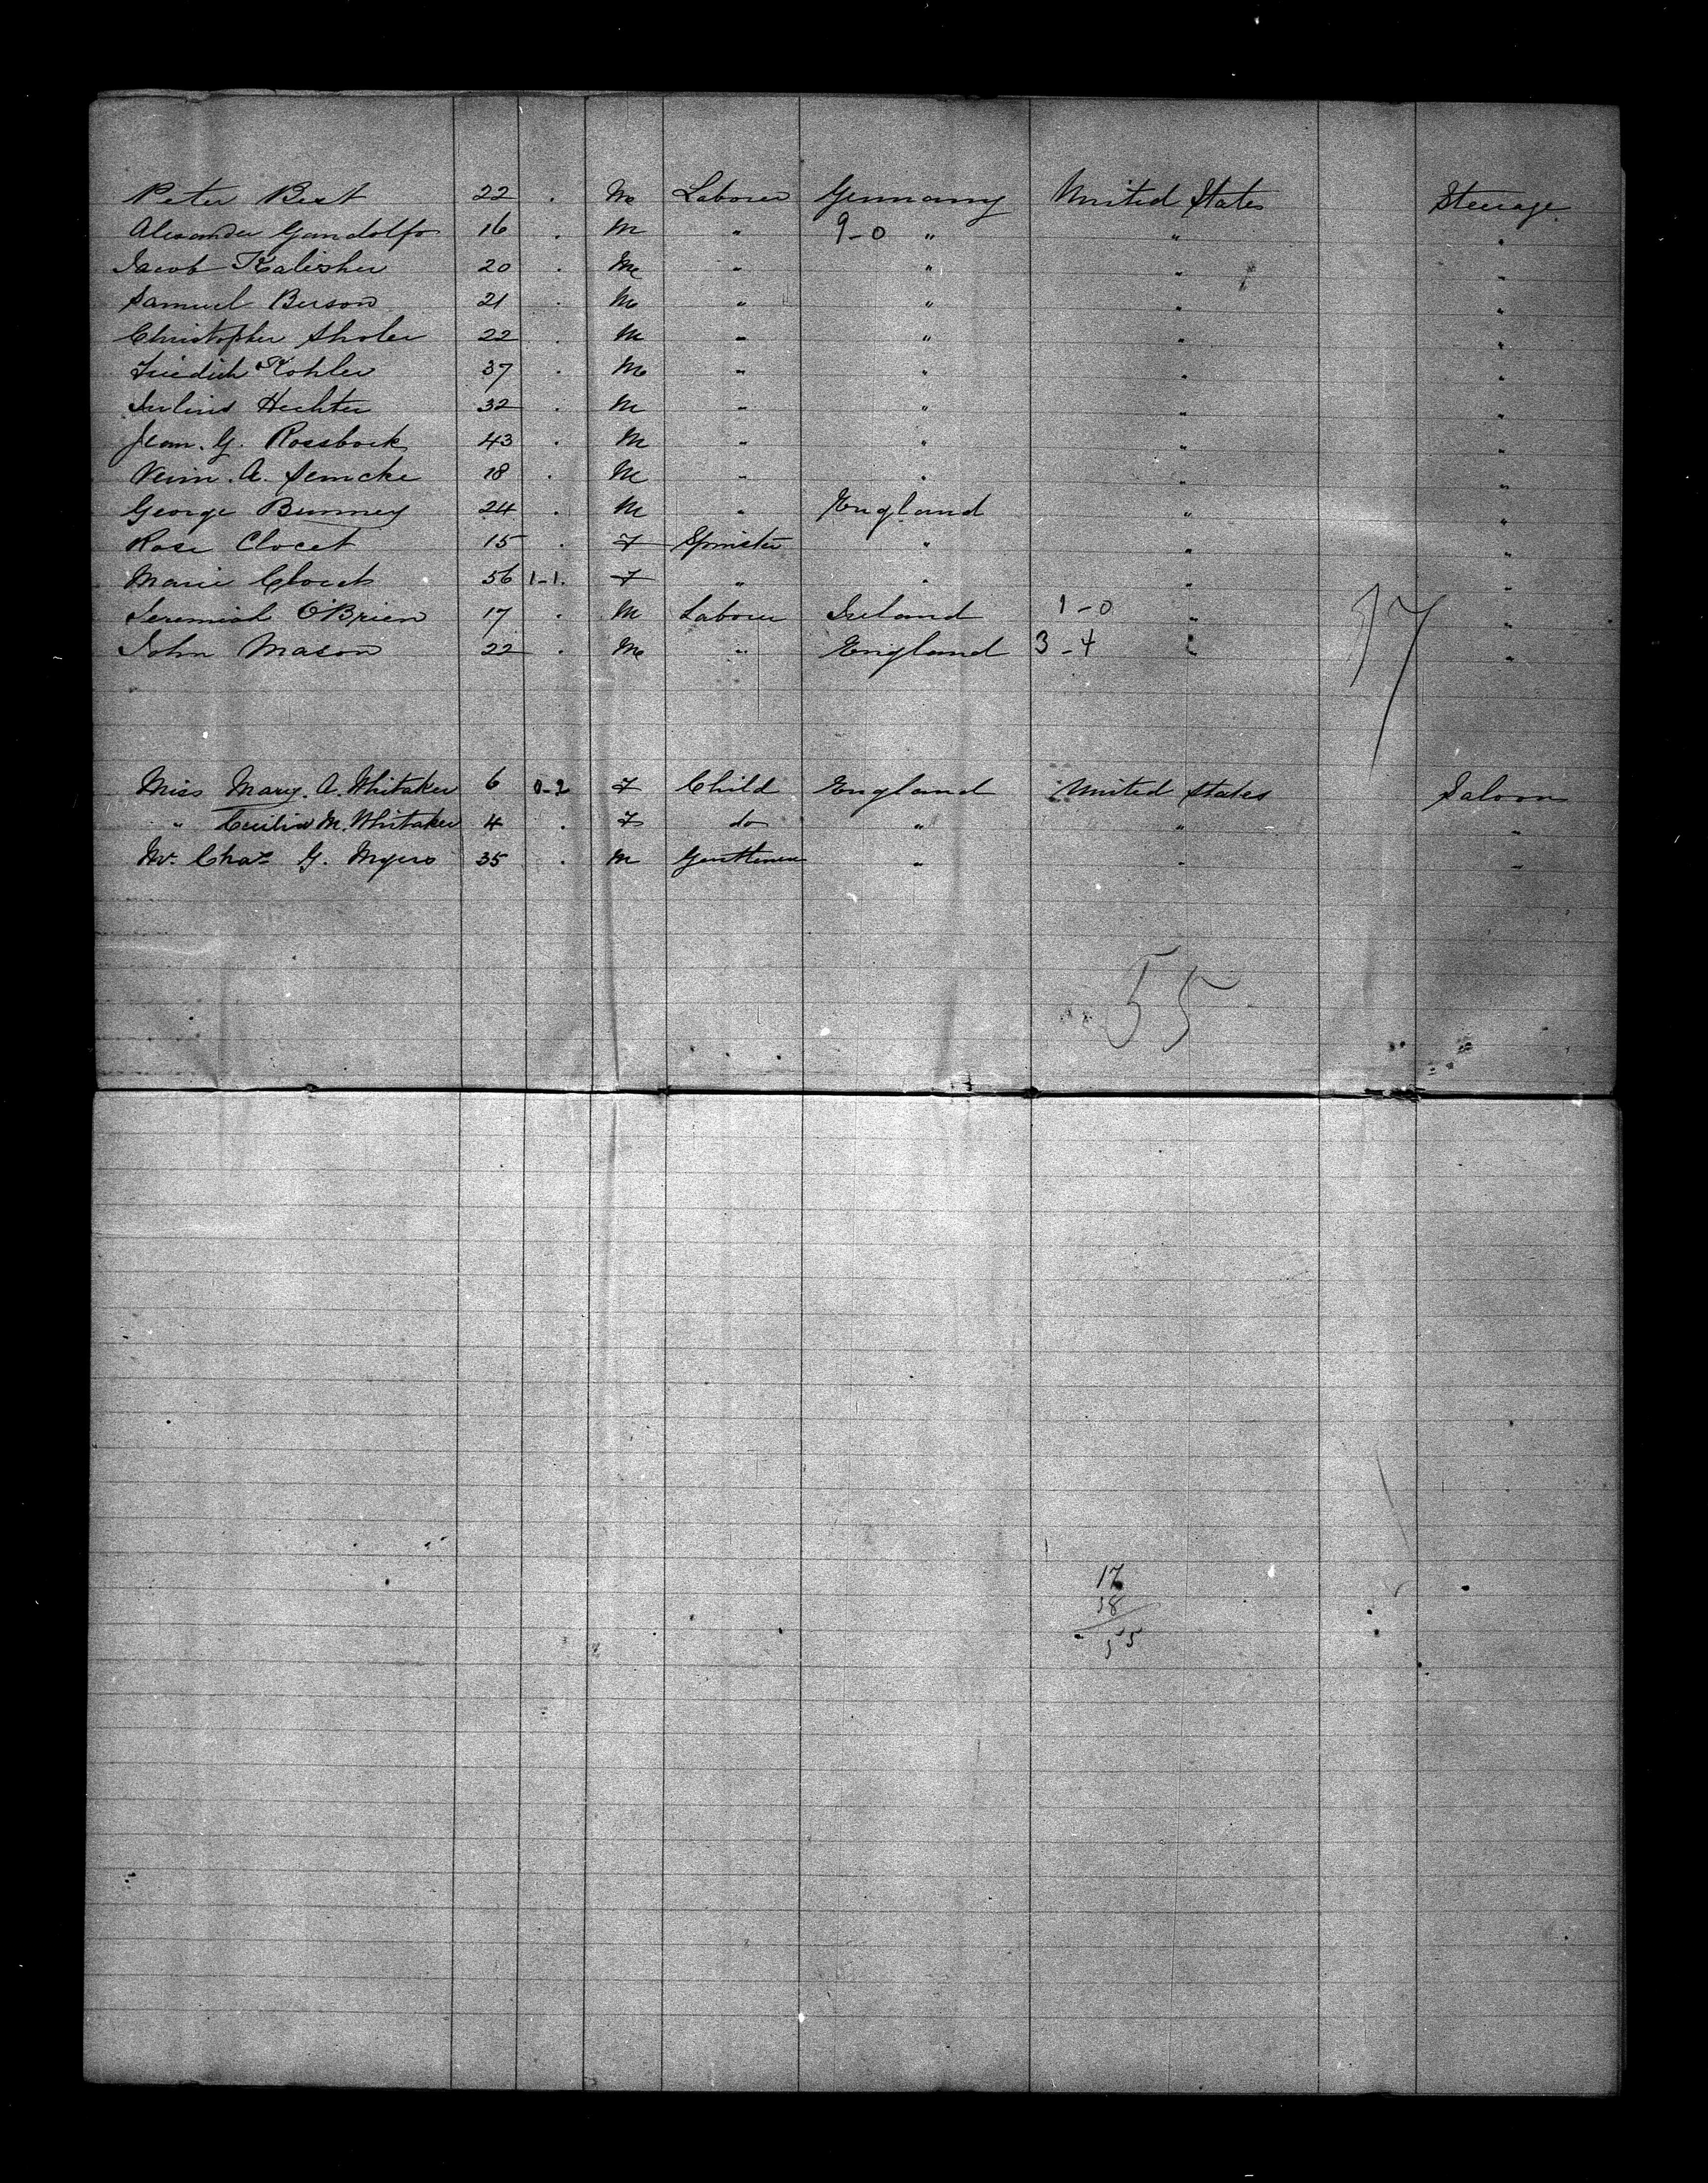 Peter Best 22 . M Laborer Germany United States Steerage
Alexander Gandolfo 16 . M " 9-0 " " "
Jacob Kalisher 20 . M " " " "
Samuel Berson 21 . M " " " "
Christopher Sholer 22 . M " " " "
Friedich Kohler 37 . M " " " "
Julius Hechter 32 . M " " " "
Jean. G. Rossbock 43 . M " " " "
A. Semcke 18 . M " " " "
George Bunney 24 . M " England " "
Rose Clocet 15 . F Spinster " " "
Marie Clocet 56 1-1. F " " " "
Jeremiah O'Brien 17 . M Laborer Ireland 1-0 " "
John Mason 22 . M " England 3-4 " "
17
Miss Mary. A. Whitaker 6 0-2 F Child England United States Saloon
" Cecilia M. Whitaker 4 . F do " " "
Mr. Chas G. Myers 35 . M Gentleman " " "
55
17
38
55